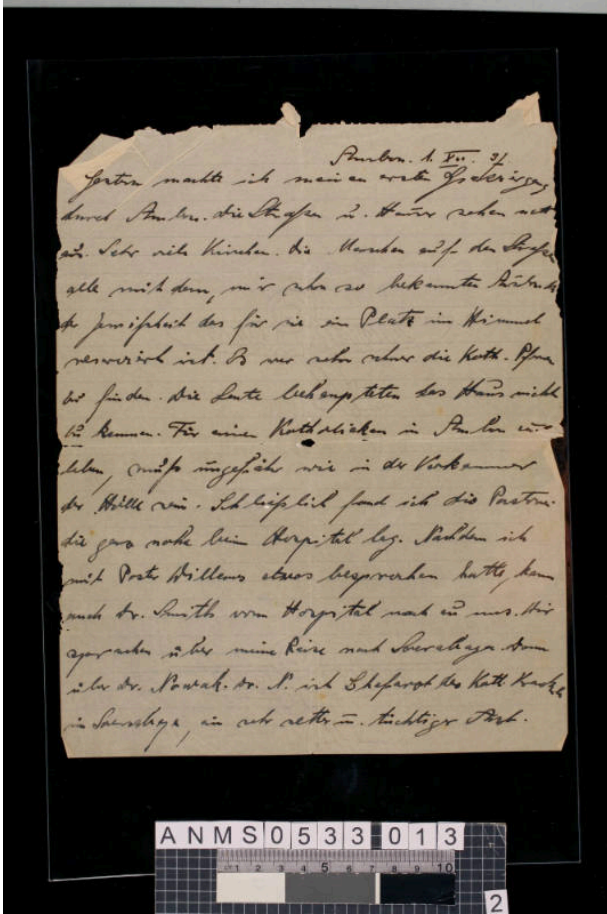 Ambon. 1. VII. 31
Gestern machte ich meinen ersten Spaziergang
durch Ambon. Die Straßen u. Häuser sehen nett
aus. Sehr viele Kirchen. Die Menschen auf den Straßen
alle mit dem, mir schon so bekannten Ausdruck
der Gewißheit das für sie ein Platz im Himmel
reserviert ist. Es war sehr schwer die Kath. Pfarre
zu finden. Die Leute behaupteten das Haus nicht
zu kennen. Für einen Katholicken in Ambon zu
leben, muß ungefähr wie in der Vorkammer
der Hölle sein. Schließlich fand ich die Pastorei
die ganz nahe beim Hospital lag. Nachdem ich
mit Pastor Willems etwas besprochen hatte, kam
auch Dr. Smith vom Hospital noch zu uns. Wir
sprachen über meine Reise nach Soerabaya. Dann
über Dr. Nowak. Dr. N. ist Chefarzt des Kath. Krankh.
in Soerabaya, ein sehr netter u. tüchtiger Arzt.
ANMS0533 013
1 2 3 4 5 6 7 8 9 10
2